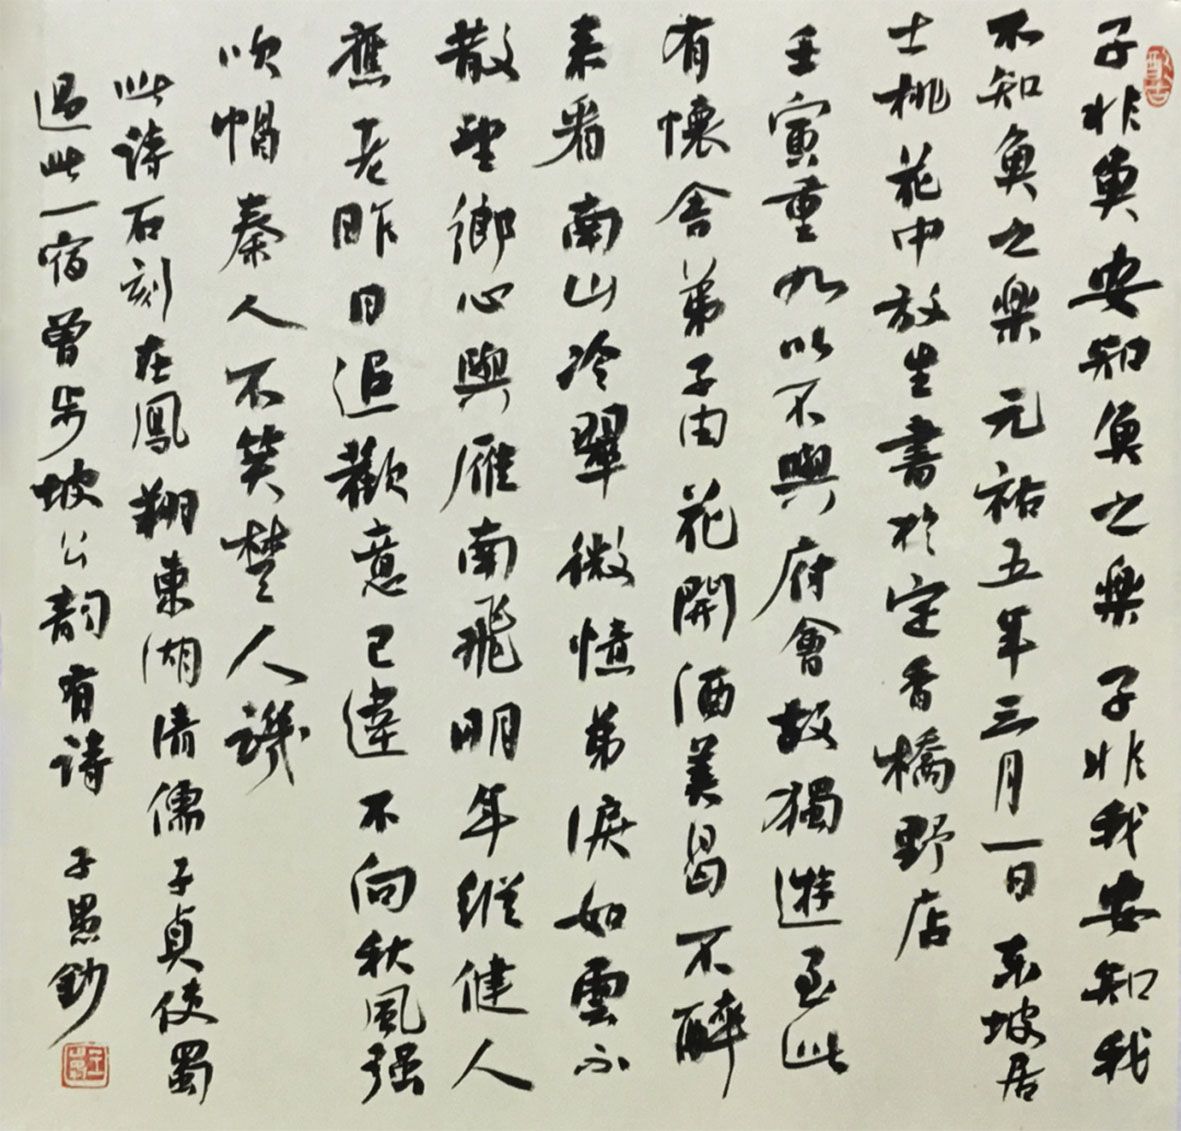 子非魚安知魚之樂子非我安知我
不知魚之樂 元祐五年三月一日東坡居
士桃花中放生書於定香橋野店
壬寅重九以不與府會故獨遊至此
有懷舍弟子由花開酒美曷不醉
來看南山冷翠微憶弟淚如雲不
散望鄉心與雁南飛明年縱健人
應老昨日追歡意已違不向秋風強
吹帽秦人不笑楚人譏
此詩石刻在鳳翔東湖清儒子貞使蜀
過此一宿曾步坡公韵有詩 子愚鈔